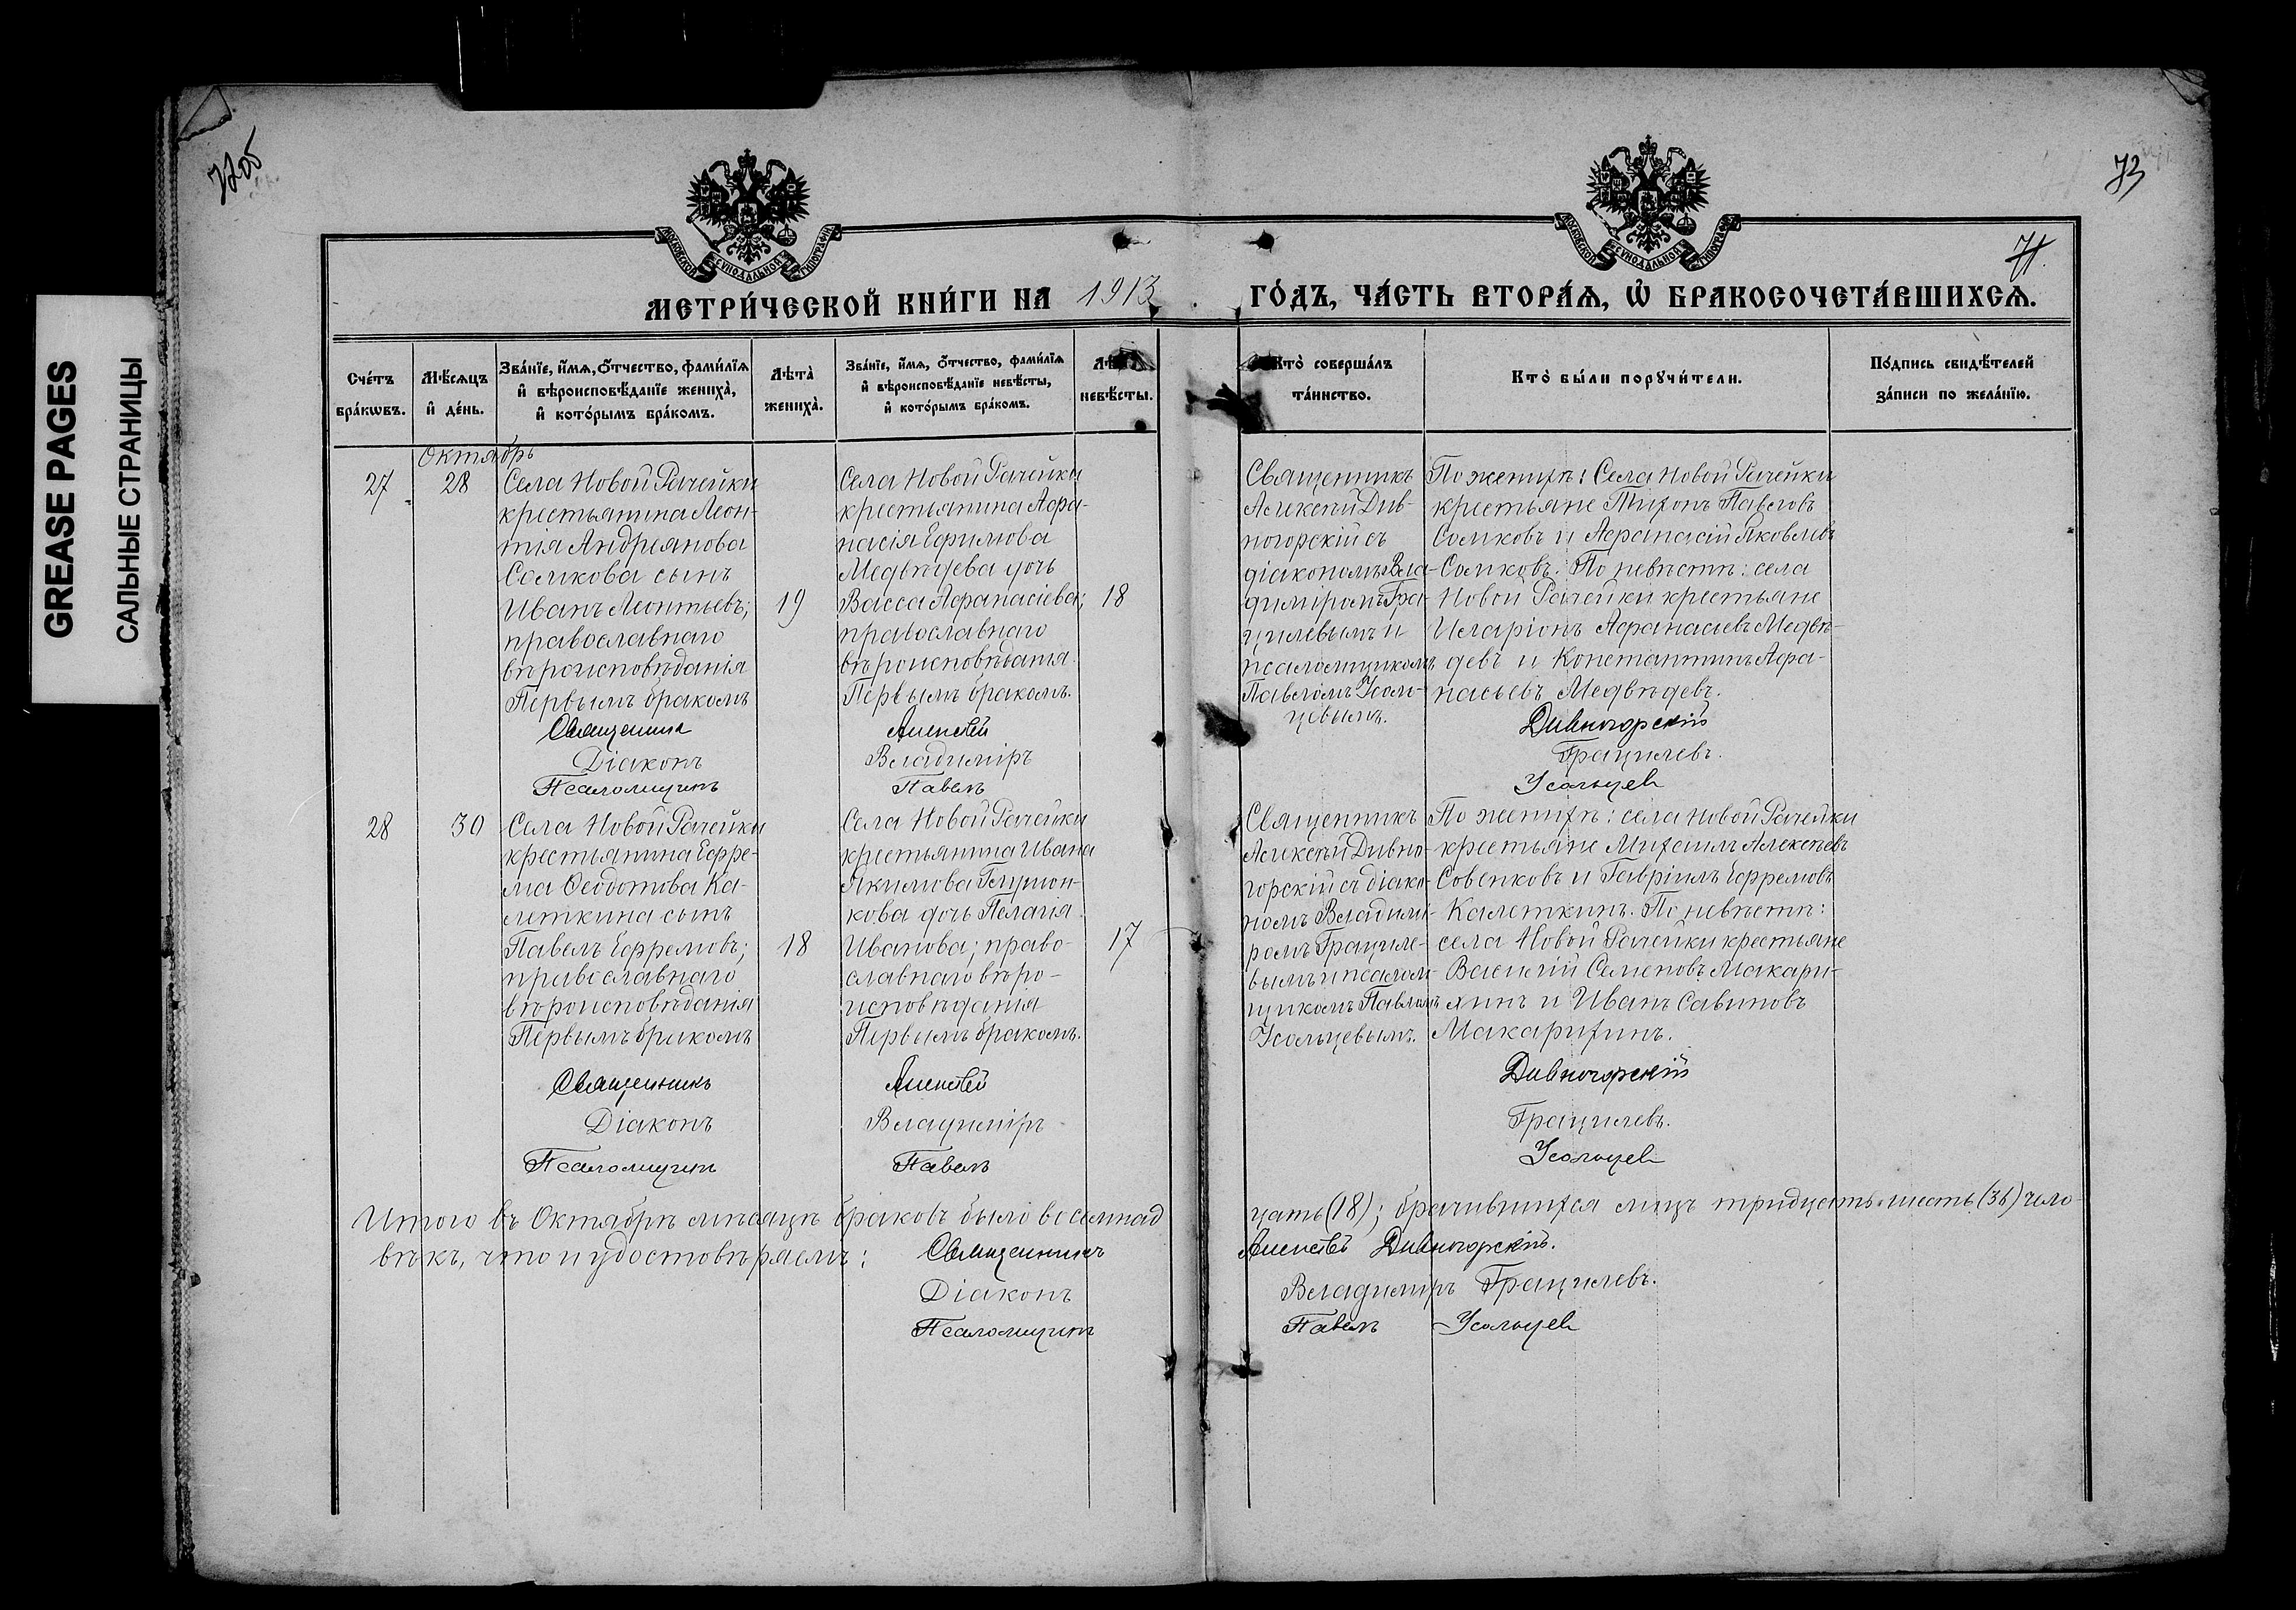 GREASE PAGES
САЛЬНЫЕ СТРАНИЦЫ
73
71
МОСКОВСКОЙ СѴНОДАЛЬНОЙ ТИПОГРАФІИ
МОСКОВСКОЙ СѴНОДАЛЬНОЙ ТИПОГРАФІИ
МЕТРИ́ЧЕСКОЙ КНИ́ГИ НА 1913 ГО́ДЪ, ЧА́СТЬ ВТОРА́Ѧ, Ѡ҆ БРАКОСОЧЕТА́ВШИХСѦ.
Сче́тъ бра́кѡвъ.
Мѣ́сѧцъ и҆ де́нь.
Зва́нїе, и҆́мѧ, ѻ҆́тчество, фами́лїѧ и҆ вѣроисповѣ́данїе жениха̀, и҆ кото́рымъ бра́комъ.
Лѣта̀ жениха̀.
Зва́нїе, и҆́мѧ, ѻ҆́тчество, фами́лїѧ и҆ вѣроисповѣ́данїе невѣ́сты, и҆ кото́рымъ бра́комъ.
Лѣта̀ невѣ́сты.
Кто̀ соверша́лъ та́инство.
Кто̀ бы́ли порꙋчи́тели.
По́дпись свидѣ́телей за́писи по жела́нїю.
Октябрь
27
28
Села Новой Рачейки
крестьянина Леон-
тія Андріянова
Сомкова сынъ
Иванъ Леонтьевъ;
православнаго
вѣроисповѣданія
Первымъ бракомъ
19
Села Новой Рачейки
крестьянина Афа-
насія Ефимова
Медвѣдева дочь
Васса Афанасіева;
православнаго
вѣроисповѣданія.
Первымъ бракомъ.
18
Священникъ
Алексѣй Див-
ногорскій съ
діакономъ Вла-
димиромъ Гра-
цилевымъ и
псаломщикомъ
Павломъ Усоль-
цевымъ.
По женихѣ: Села Новой Рачейки
крестьяне Тихонъ Павловъ
Сомковъ и Афанасій Яковлевъ
Сомковъ. По невѣстѣ: села
Новой Рачейки крестьяне
Иларіонъ Афанасіевъ Медвѣ-
девъ и Константинъ Афа-
насьевъ Медвѣдевъ.
Священникъ Алексѣй Дивногорскій
Діаконъ Владиміръ Грацилевъ.
Псаломщикъ Павелъ Усольцев
28
30
Села Новой Рачейки
крестьянина Ефре-
ма Ѳеодотова Ка-
леткина сынъ
Павелъ Ефремовъ;
православнаго
вѣроисповѣданія
Первымъ бракомъ
18
Села Новой Рачейки
крестьянина Ивана
Якимова
кова дочь Пелагія
Иванова; право-
славнаго вѣро-
исповѣданія
Первымъ бракомъ.
17
Священникъ
Алексѣй Дивно-
горскій съ діако-
номъ Владими-
ромъ Грациле-
вымъ и псалом-
щикомъ Павломъ
Усольцевымъ.
По женихѣ: села Новой Рачейки
крестьяне Михаилъ Алексѣевъ
Совенковъ и Гавріилъ Ефремовъ
Калеткинъ. По невѣстѣ:
села Новой Рачейки крестьяне
Василій Семеновъ Макари-
хинъ и Иванъ Савиновъ
Макарихинъ.
Священникъ Алексѣй Дивногорскій
Діаконъ Владиміръ Грацилевъ.
Псаломщикъ Павелъ Усольцев
Итого въ Октябрѣ мѣсяцѣ браковъ было восемнад
цать (18); брачившихся лицъ тридцать шесть (36) чело-
вѣкъ, что и удостовѣряемъ: Священникъ Алексѣй Дивногорскій.
Діаконъ Владимиръ Грацилевъ.
Псаломщикъ Павелъ Усольцев